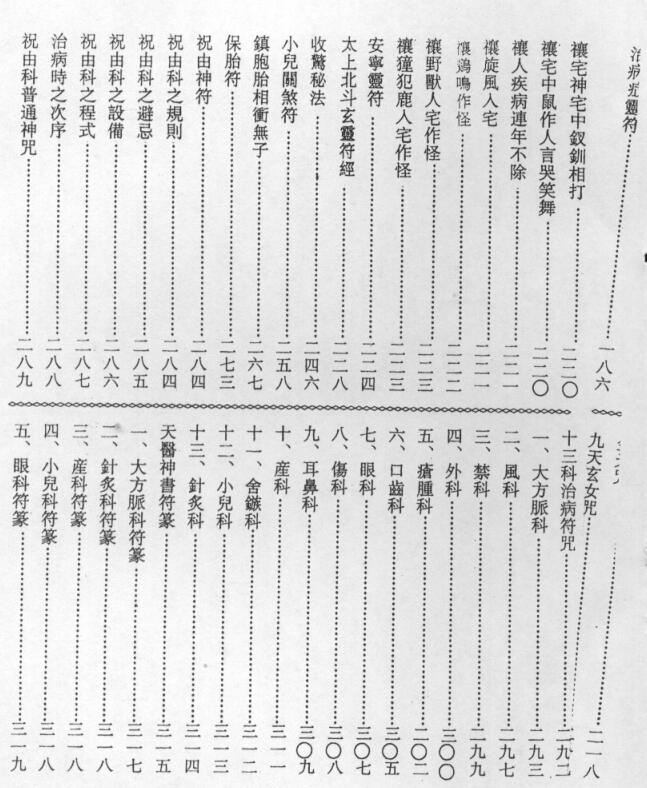 治病靈符……一八六
禳宅神宅中釵釧相打……二二〇
禳宅中鼠作人言哭笑舞……二二〇
禳人疾病連年不除……二二一
禳旋風入宅……二二一
禳鷄鳴作怪……二二二
禳野獸入宅作怪……二二三
禳獞犯鹿入宅作怪……二二三
安寧靈符……二二四
太上北斗玄靈符經……二二八
收驚秘法……二四六
小兒關煞符……二五八
鎮胞胎相衝無子……二六七
保胎符……二七三
祝由神符……二八四
祝由科之規則……二八四
祝由科之避忌……二八五
祝由科之設備……二八六
祝由科之程式……二八七
治病時之次序……二八八
祝由科普通神咒……二八九
九天玄女咒……二一八
十三科治病符咒……二九二
一、大方脈科……二九三
二、風科……二九七
三、禁科……二九九
四、外科……三〇〇
五、瘡腫科……三〇二
六、口齒科……三〇五
七、眼科……三〇七
八、傷科……三〇八
九、耳鼻科……三〇九
十、産科……三一一
十一、舍鏃科……三一二
十二、小兒科……三一三
十三、針炙科……三一四
天醫神書符篆……三一五
一、大方脈科符篆……三一七
二、針炙科符篆……三一八
三、産科符篆……三一八
四、小兒科符篆……三一八
五、眼科符篆……三一九